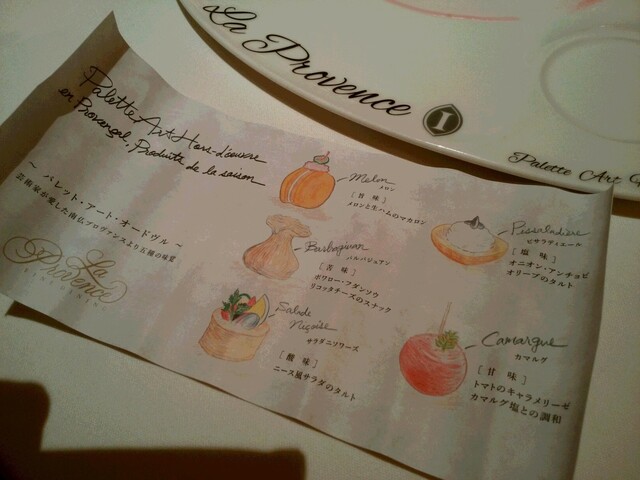 La Provence
I
Palette Art
Palette Art Hors-d'œuvre
en Provençal, Produits de la saison
~ パレット・アート・オードヴル ~
芸術家が愛した南仏プロヴァンスより五種の味覚
La
Provence
Melon
メロン
[甘味]
メロンと生ハムのマカロン
Barbajuan
バルバジュアン
[苦味]
ポワロー・フダンソウ
リコッタチーズのスナック
Salade
Niçoise
サラダニソワーズ
[酸味]
ニース風サラダのタルト
Pissaladière
ピサラディエール
[塩味]
オニオン・アンチョビ
オリーブのタルト
Camargue
カマルグ
[甘味]
トマトのキャラメリーゼ
カマルグ塩との調和